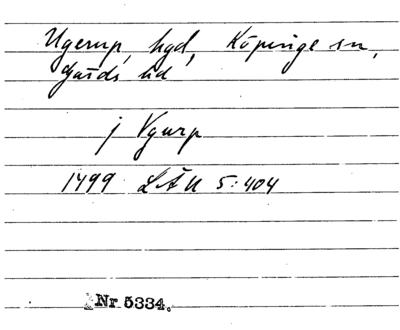 Ugerup, hgd, Köpinge sn,
Gärds hd
j Vgurp
1499 LÄU 5:404
Nr 5334.